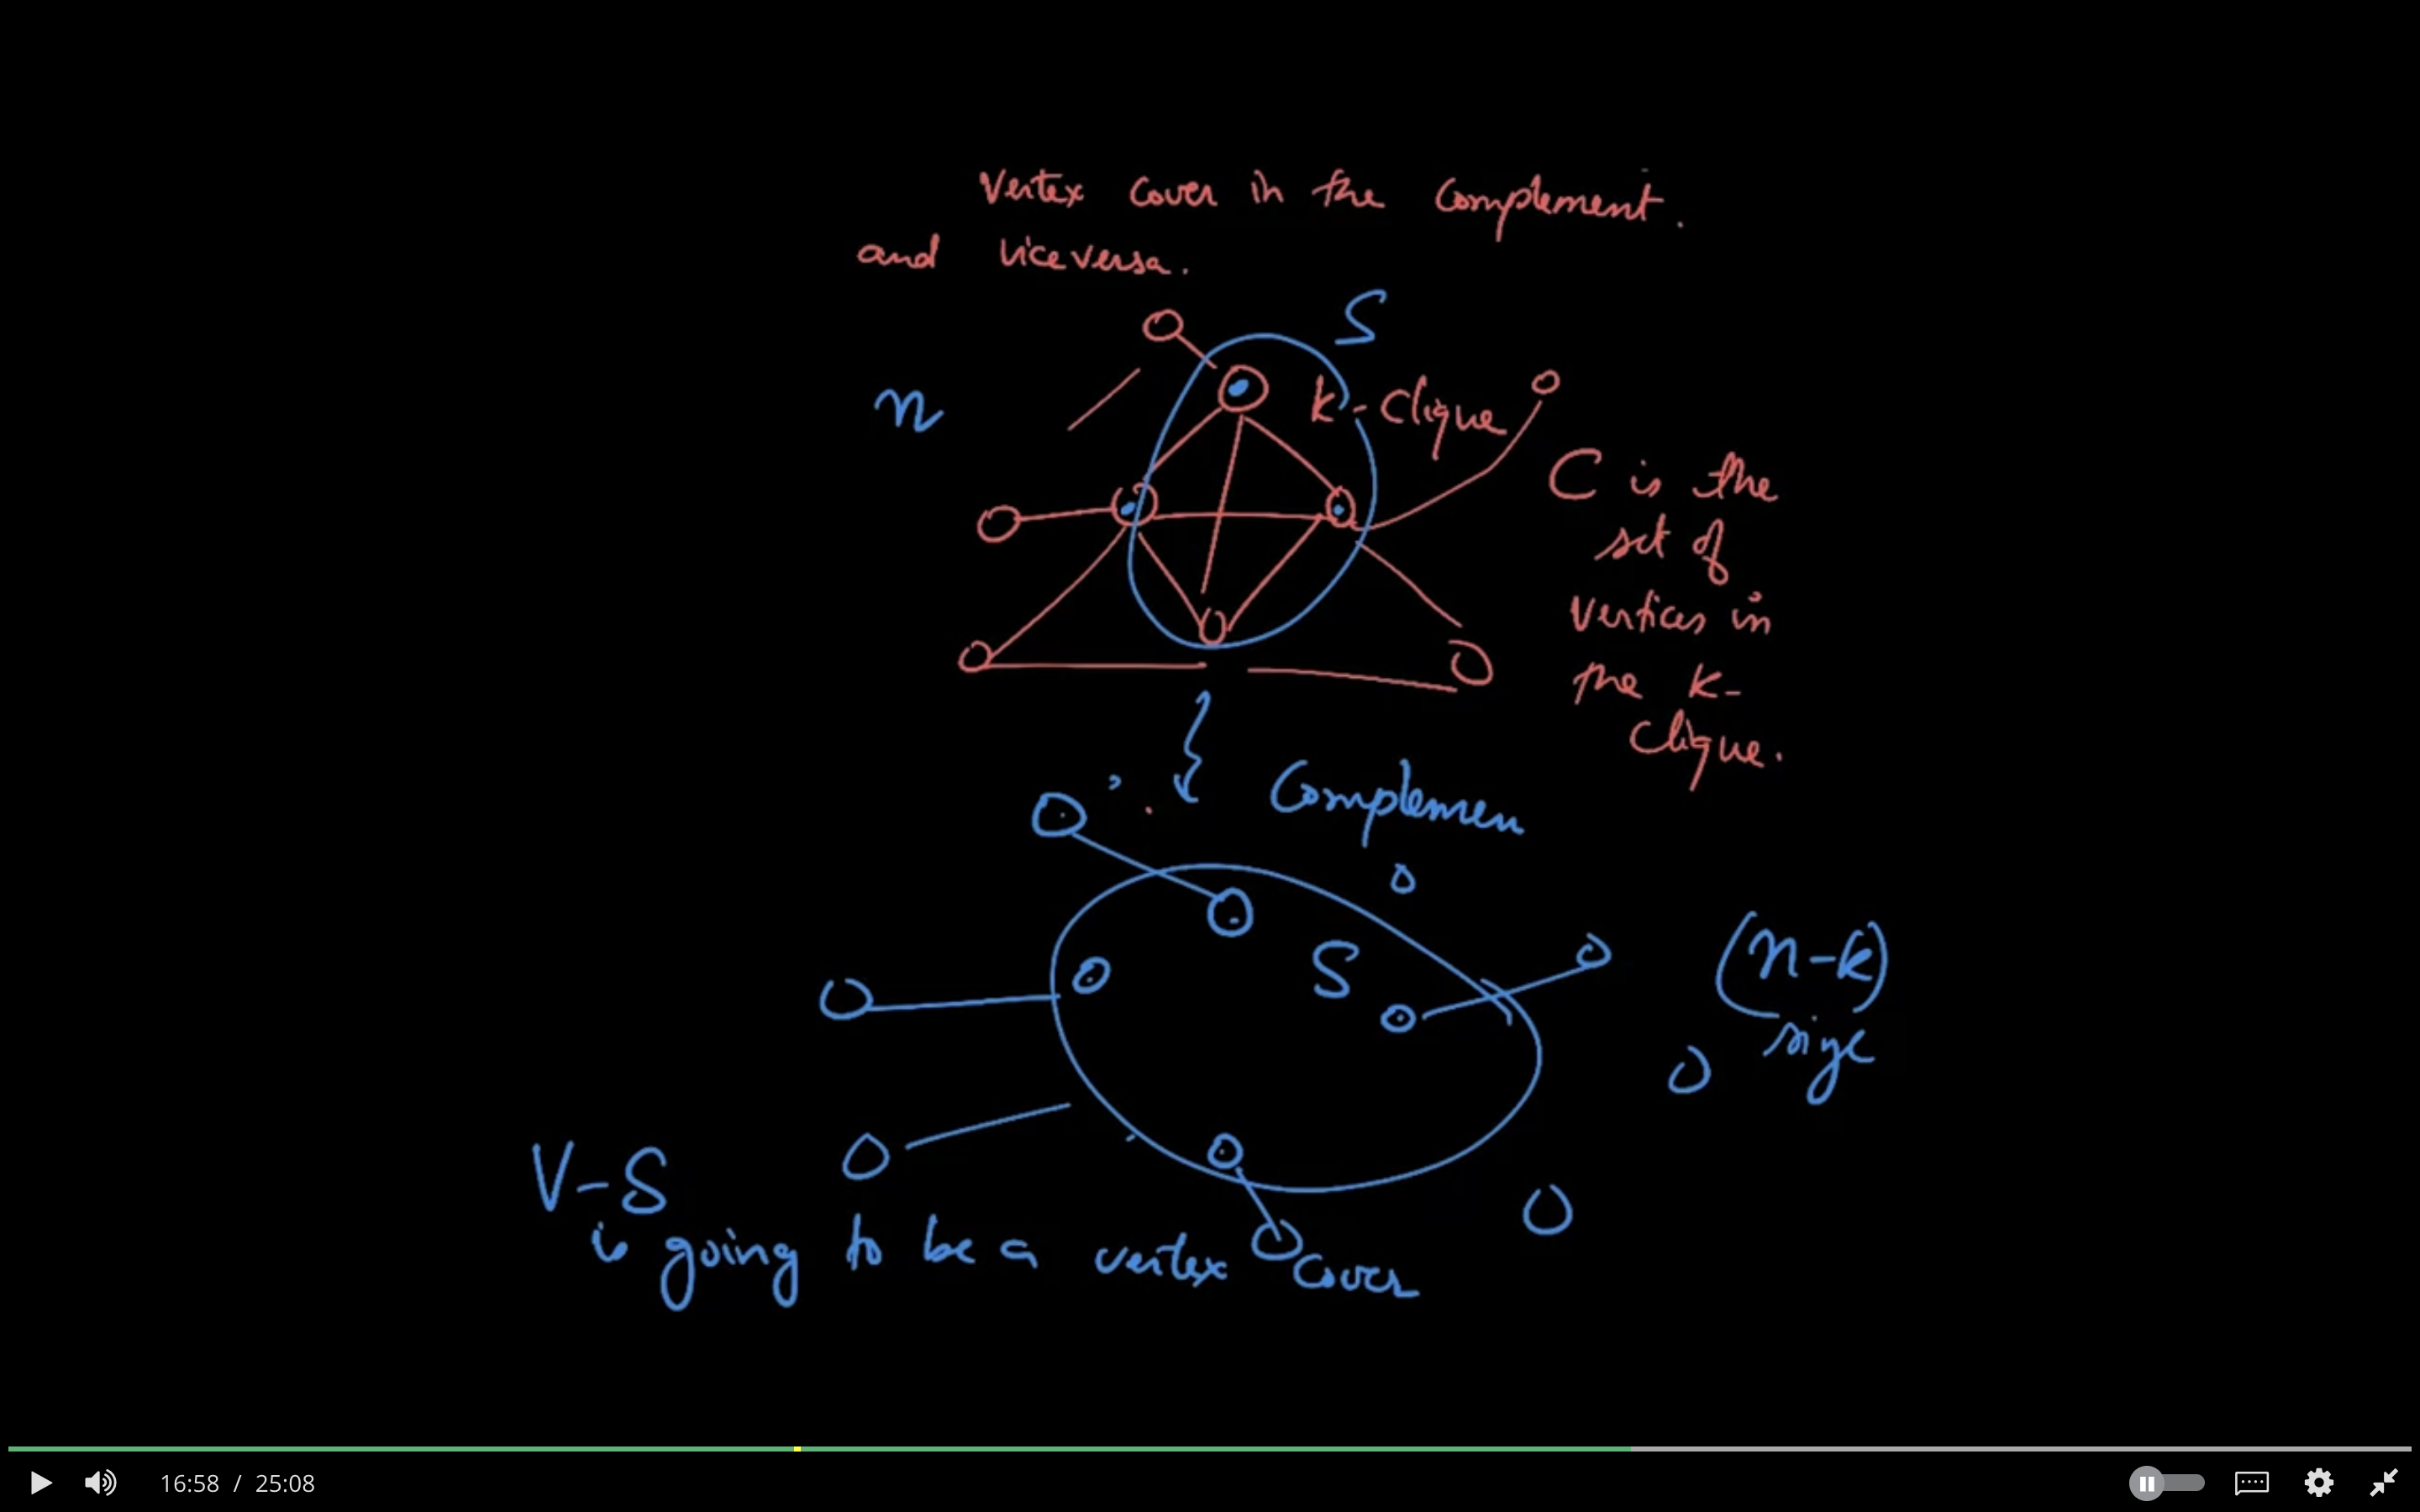 Vertex Cover in the Complement.
and viceversa.
S
n
k-Clique
C is the
set of
vertices in
the k-
Clique.
Complemen
S
(n-k)
size
V-S
is going to be a vertex Cover
16:58 / 25:08